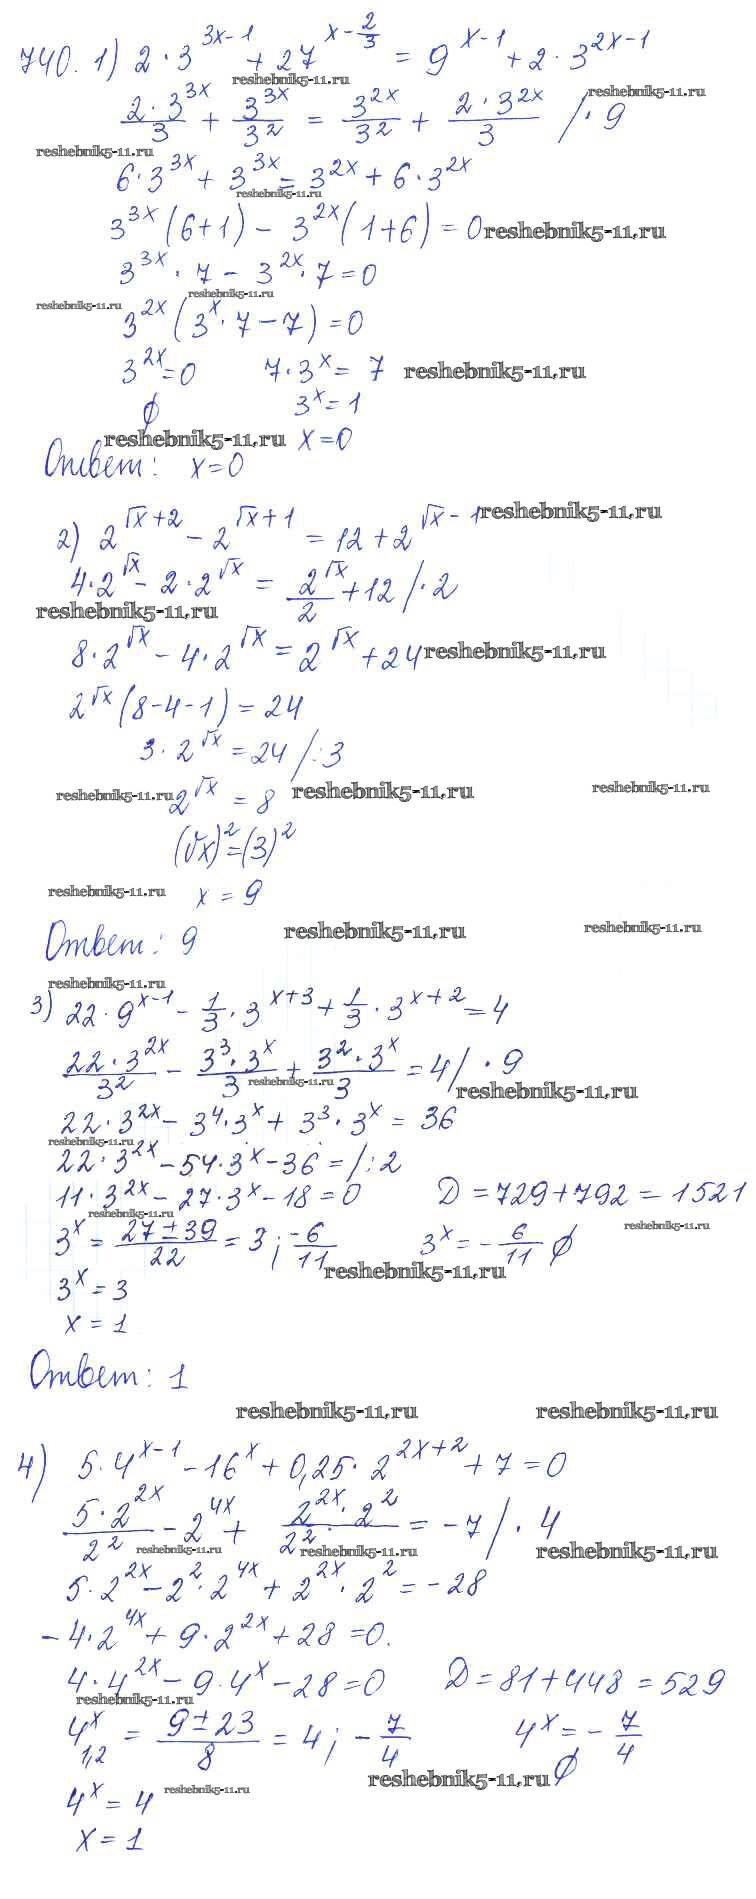 740. 1) 2·3^(3x-1) + 27^(x-2/3) = 9^(x-1) + 2·3^(2x-1)
reshebnik5-11.ru
reshebnik5-11.ru
2·3^(3x)/3 + 3^(3x)/3^2 = 3^(2x)/3^2 + 2·3^(2x)/3 /·9
reshebnik5-11.ru
6·3^(3x) + 3^(3x) = 3^(2x) + 6·3^(2x)
reshebnik5-11.ru
3^(3x)(6+1) - 3^(2x)(1+6) = 0
reshebnik5-11.ru
3^(3x)·7 - 3^(2x)·7 = 0
reshebnik5-11.ru
reshebnik5-11.ru
3^(2x)(3^x·7-7) = 0
3^(2x) = 0 7·3^x = 7
reshebnik5-11.ru
∅ 3^x = 1
reshebnik5-11.ru
x = 0
Ответ: x = 0
2) 2^(√x+2) - 2^(√x+1) = 12 + 2^(√x-1)
reshebnik5-11.ru
4·2^√x - 2·2^√x = 2^√x/2 + 12 /·2
reshebnik5-11.ru
8·2^√x - 4·2^√x = 2^√x + 24
reshebnik5-11.ru
2^√x(8-4-1) = 24
3·2^√x = 24 /:3
reshebnik5-11.ru
2^√x = 8
reshebnik5-11.ru
reshebnik5-11.ru
(√x)^2 = (3)^2
reshebnik5-11.ru
x = 9
Ответ: 9
reshebnik5-11.ru
reshebnik5-11.ru
reshebnik5-11.ru
3) 22·9^(x-1) - 1/3·3^(x+3) + 1/3·3^(x+2) = 4
22·3^(2x)/3^2 - 3^3·3^x/3 + 3^2·3^x/3 = 4 /·9
reshebnik5-11.ru
reshebnik5-11.ru
22·3^(2x) - 3^4·3^x + 3^3·3^x = 36
reshebnik5-11.ru
22·3^(2x) - 54·3^x - 36 = /:2
11·3^(2x) - 27·3^x - 18 = 0 D = 729+792 = 1521
reshebnik5-11.ru
reshebnik5-11.ru
3^x = (27±39)/22 = 3; -6/11 3^x = -6/11 ∅
reshebnik5-11.ru
3^x = 3
x = 1
Ответ: 1
reshebnik5-11.ru
reshebnik5-11.ru
4) 5·4^(x-1) - 16^x + 0,25·2^(2x+2) + 7 = 0
5·2^(2x)/2^2 - 2^(4x) + 2^(2x)·2^2/2^2 = -7 /·4
reshebnik5-11.ru
reshebnik5-11.ru
reshebnik5-11.ru
5·2^(2x) - 2^2·2^(4x) + 2^(2x)·2^2 = -28
-4·2^(4x) + 9·2^(2x) + 28 = 0.
4·4^(2x) - 9·4^x - 28 = 0 D = 81+448 = 529
reshebnik5-11.ru
4^x_(1,2) = (9±23)/8 = 4; -7/4 4^x = -7/4
reshebnik5-11.ru ∅
4^x = 4
reshebnik5-11.ru
x = 1